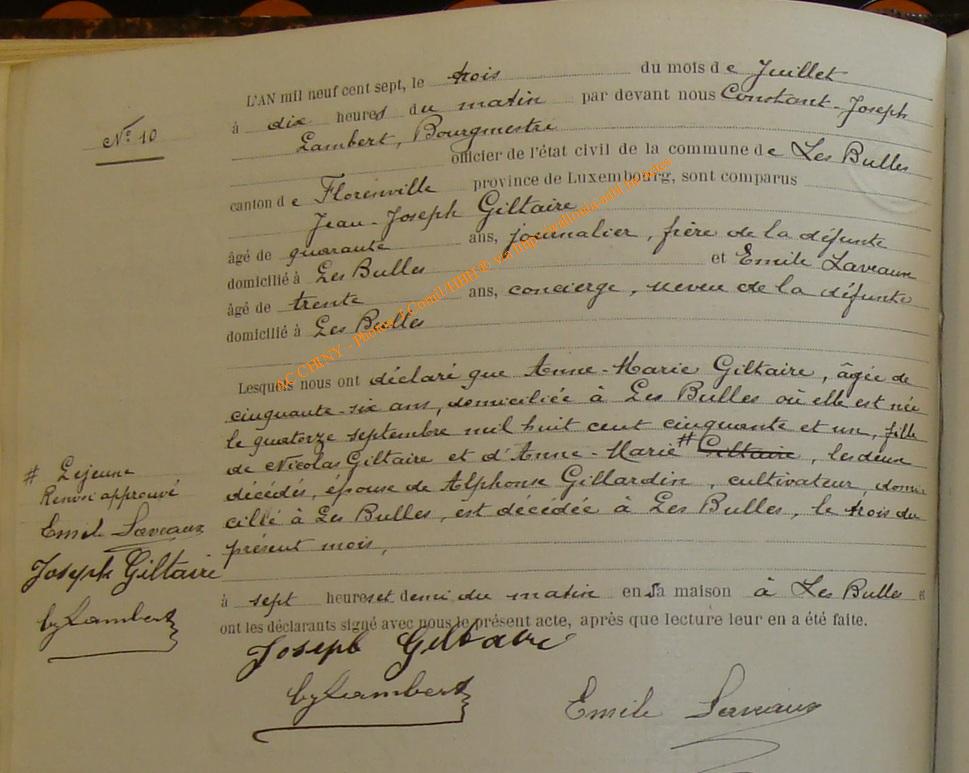 N° 10
L'AN mil neuf cent sept, le trois du mois de Juillet
à dix heures du matin par devant nous Constant-Joseph
Lambert, Bourgmestre
officier de l'état civil de la commune de Les Bulles
canton de Florenville province de Luxembourg, sont comparus
Jean-Joseph Giltaire
âgé de quarante ans, journalier, frère de la défunte
domicilié à Les Bulles et Emile Laveaux
âgé de trente ans, concierge, neveu de la défunte
domicilié à Les Bulles
Lesquels nous ont déclaré que Anne-Marie Giltaire, âgée de
cinquante-six ans, domiciliée à Les Bulles où elle est née
le quatorze septembre mil huit cent cinquante et un, fille
de Nicolas Giltaire et d'Anne-Marie # Giltaire, les deux
décédés, épouse de Alphonse Gillardin, cultivateur, domi-
cilié à Les Bulles, est décédée à Les Bulles, le trois du
présent mois,
à sept heures et demi du matin en sa maison à Les Bulles et
ont les déclarants signé avec nous le présent acte, après que lecture leur en a été faite.
Joseph Giltaire
Lambert
Emile Laveaux
# Lejeune
Renvoi approuvé
Emile Laveaux
Joseph Giltaire
Lambert
AC CHINY - Photos